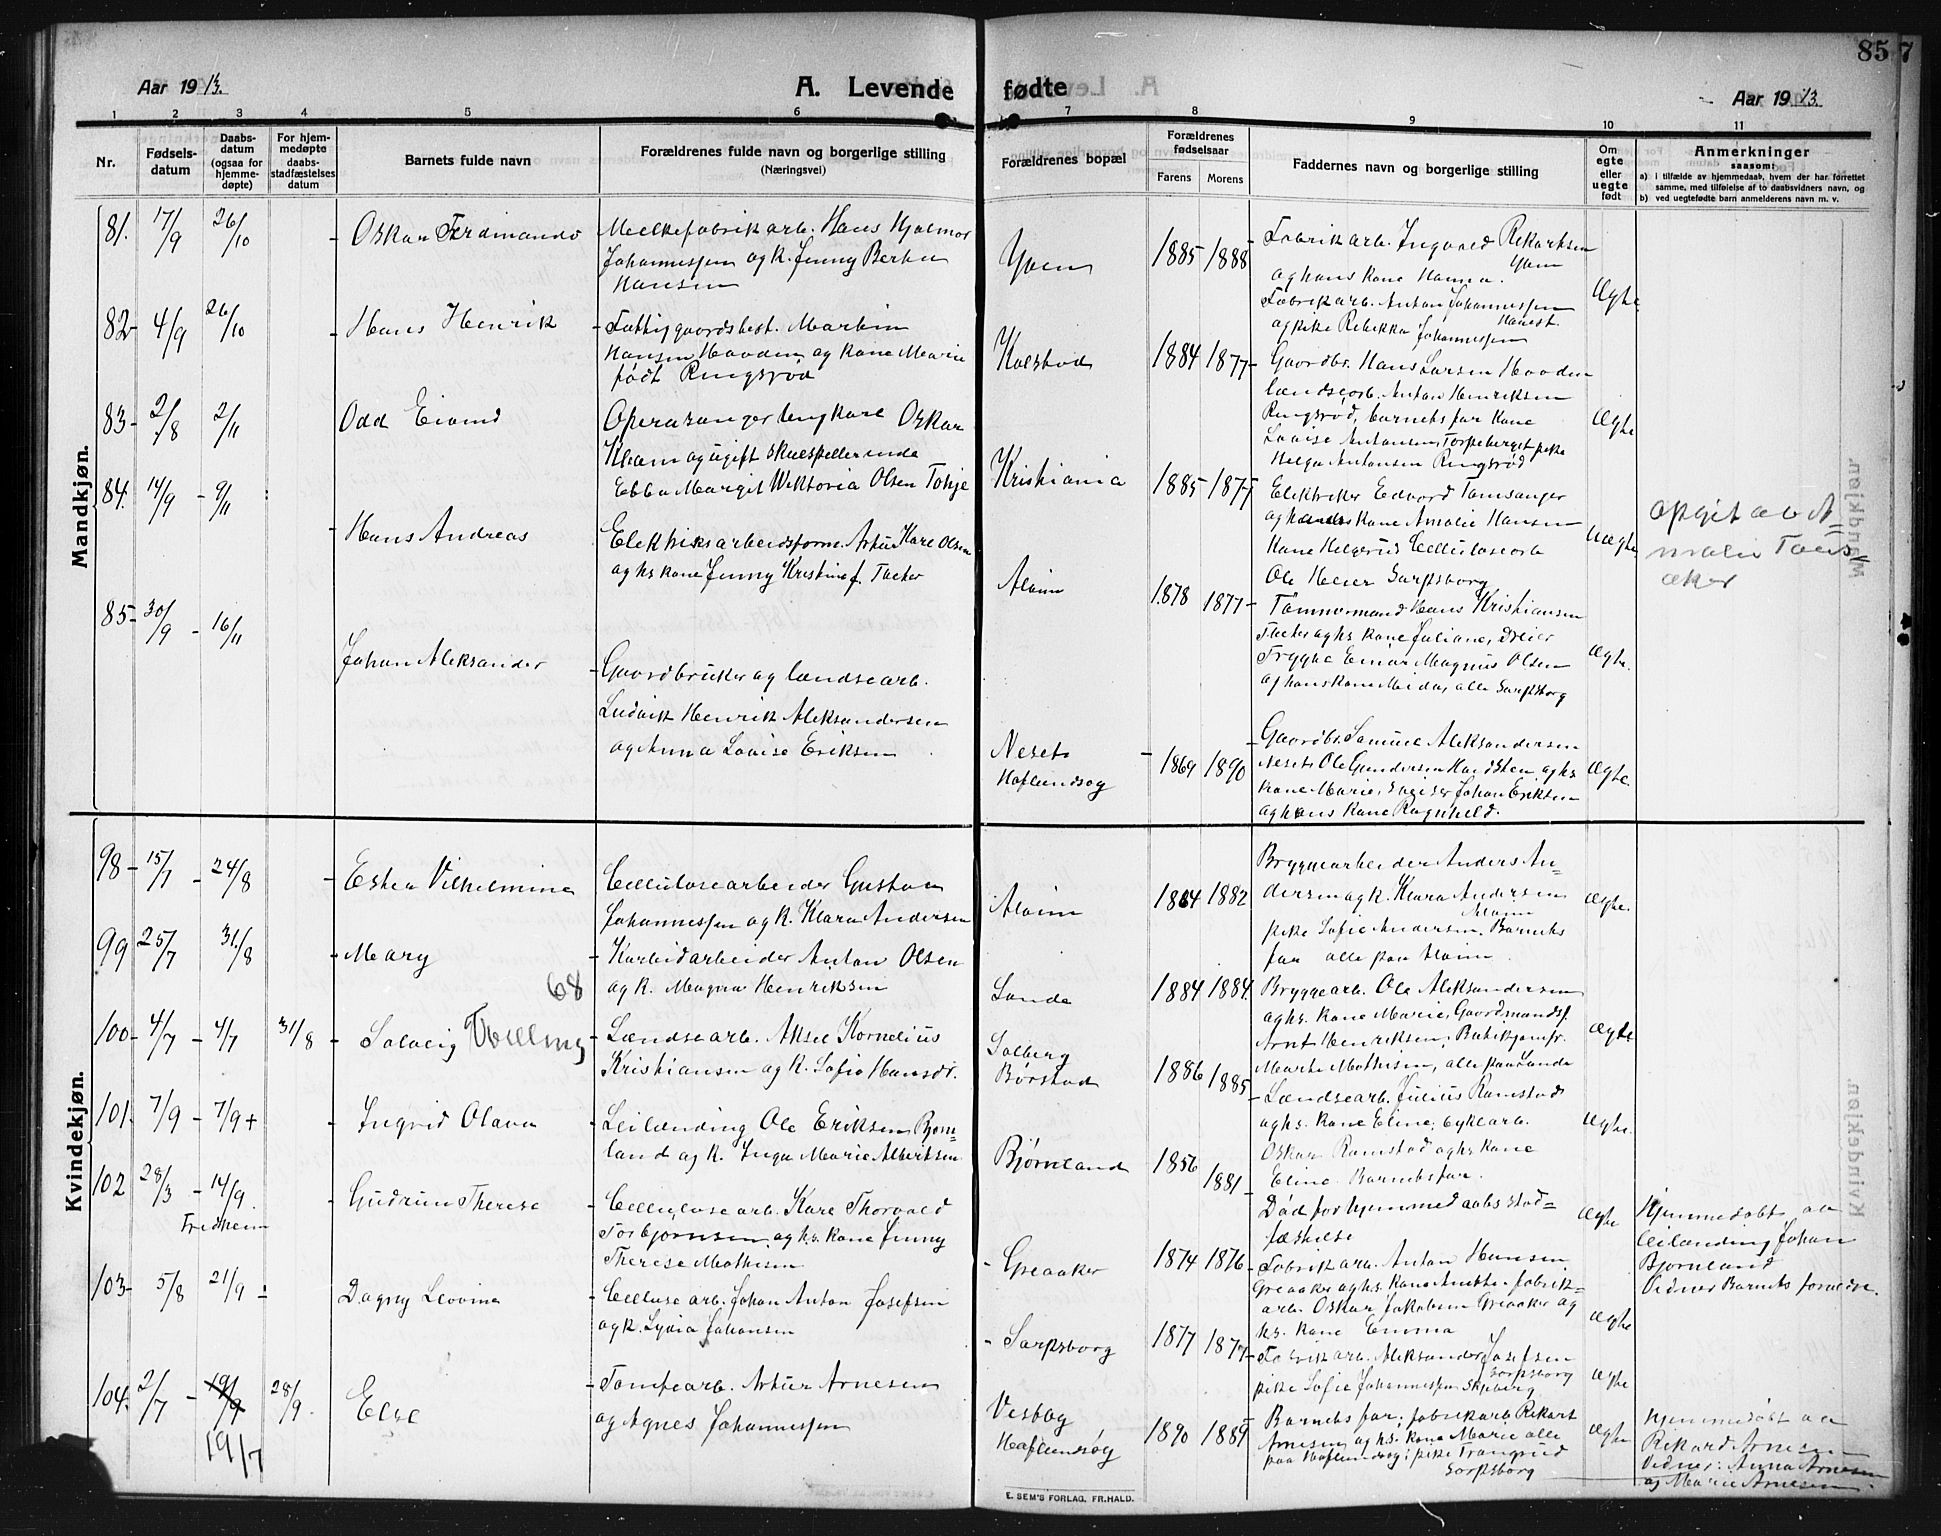 85
7
Aar 1913.
A. Levende
fødte
Aar 1913.
1 2 3 4 5 6 7 8 9 10 11
Nr.
Fødsels-
datum
Daabs-
datum
(ogsaa for
hjemme-
døpte)
For hjem-
medøpte
daabs-
stadfæstelses
datum
Barnets fulde navn
Forældrenes fulde navn og borgerlige stilling
(Næringsvei)
Forældrenes bopæl
Forældrenes
fødselsaar
Farens Morens
Faddernes navn og borgerlige stilling
Om
egte
eller
uegte
født
Anmerkninger
saasom:
a) i tilfælde av hjemmedaab, hvem der har forrettet
samme, med tilføielse af to daabsvidners navn, og
b) ved uegtefødte barn anmelderens navn m. v.
Mandkjøn.
81. 17/9 26/10
Oskar Ferdinand
Melkefabrikarb. Hans Hjalmar
Johannessen og k. Jenny Berta
Hansen
Yven
1885 1888
Fabrikarb. Ingvald Rikartsen
Yven
og hans kone Hanna.
Fabrikarb. Anton Johannessen
Hanest.
og pike Rebekka Johannessen
Ægte.
82 4/9 26/10
Hans Henrik
Fattiggaardsbest. Martin
Hansen Hauden og kone Marie
født Ringsrød
Kalstad
1884 1877
Gaardbr. Hans Larsen Hauden
lændsearb. Anton Henriksen
Ringsrød, barnets far kone
Lovise Antonsen, Torpeberget pike
Helga Antonsen Ringsrød
Ægte
83 2/8 2/11
Odd Eivind
Operasanger ungkarl Oskar
Kham og ugift skuespillerinde
Ebba Margit Viktoria Olsen Tohje
Kristiania
1885 1877
Elektriker Edvard Tamsanger
og hans kone Amalie Hansen
Kone Helgerud Cellulosearb
Ole Heier Sarpsborg
Uægte
opgit av A-
malie Tams
aker
84. 14/9 - 9/11
Hans Andreas
Elektriksarbeidsform. Artur Karl Olsen
og hs kone Jenny Kristine f. Tveter
Alvim
1878 1877
Tømmermand Hans Kristiansen
Tveter og hs. kone Juliane, Dreier
Trygve Einar Magnus Olsen
og hans kone Meida, alle Sarpsborg
Ægte.
85- 30/9 - 16/11
Johan Aleksander
Gaardbruker og lændsearb.
Ludvik Henrik Aleksandersen
og Anna Lovise Eriksen
Neset
Haflundsøg
1869 1890
Gaardbr. Samuel Aleksandersen
Neset, Ole Gundersen Hardsten og hs.
kone Marie, Johan Eriksen
og hans kone Ragnhild.
Ægte.
Kvindekjøn.
98- 15/7 - 24/8
Ester Vilhelmine
Cellulosearbeider Gustav
Johannessen og k. Klara Andersen
Alvim
1884 1882
Bryggearbeider Anders An-
dersen og k. Klara Andersen
Alvim
pike Sofie Andersen. Barnets
far alle paa Alvim.
Ægte.
99 25/7 31/8
Mary
68
Karbidarbeider Anton Olsen
og k. Magna Henriksen
Lande
1884 1884.
Bryggearb. Ole Aleksandersen
og hs. kone Marie, Gaardmandsf.
Arnt Henriksen, Butikjomfr.
Marte Mathisen, alle paa Lande
Ægte
100 4/7 - 4/7 31/8
Solveig
Lændsearb. Aksel Kornelius
Kristiansen og k. Sofie Hansdt.
Solberg
Børstad
1886 1885
Lændsearb. Julius Ramstad
og hs. kone Eline, cyklearb.
Oskar Ramstad og hs kone
Eline. Barnets far.
Ægte.
101. 7/9 - 7/9 +
Ingrid Olava
Leilænding Ole Eriksen Bjørn-
land og k. Inga Marie Albertsen
Bjørneland
1856 1881
Død før hjemmedaabs stad-
fæstelse
Ægte
Hjemmedøbt av
leilænding Johan
Bjørneland
Vidner Barnets forældre.
102 28/3 - 14/9.
Fredheim
Gudrun Therese
Cellulosearb. Karl Thorvald
Torbjørnsen og hs. kone Jenny
Therese Mathisen
Greaaker
1874 1876
Fabrikarb. Anton Hansen
Greaaker og hs. kone Anette. fabrik-
arb. Oskar Jakobsen Greaaker og
hs. kone Emma
Ægte
103- 5/8 21/9 -
Dagny Lovina
Cellulosearb. Johan Anton Josefsen
og k. Lydia Johansen
- Sarpsborg
1877 1877
Fabrikarb. Aleksander Josefsen
Sarpsborg
pike Sofie Johannessen Skjeberg
Ægte
104. 2/7 - 19/9 28/9.
19/7
Else
Tomtearb. Artur Arnesen
og Agnes Johannessen
Vesbag
Haflundsøg
1890 1889
Barnets far, fabrikarb. Rikart
Arnesen og hs. kone Marie alle
paa Haflundsøg; pike Trangrud
Sarpsborg
Ægte
Hjemmedøbt av
Rikard Arnesen
Vidner: Anna Arnesen
og Marie Arnesen.
E. SEM'S FORLAG, FR.HALD.